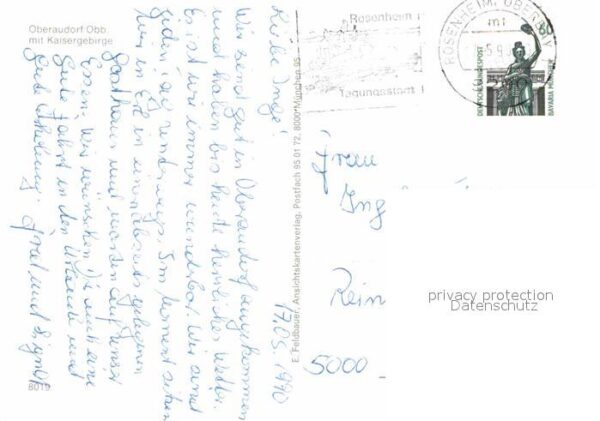 Oberaudorf Obb.
mit Kaisergebirge
17.05.1990
Liebe Inge!
Wir sind gut in Oberaudorf angekommen
und haben bis heute herrliches Wetter.
Es ist wie immer wunderbar. Wir sind
jeden Tag unterwegs. Im Moment sitzen
wir in
Gasthaus und warten auf unser
Essen. Wir wünschen Dir auch eine
gute Fahrt in den Urlaub und
gute Erholung.
8019
E. Feldbauer, Ansichtskartenverlag, Postfach 95 01 72, 8000 München 95
Rosenheim
Tagungsstadt
ROSENHEIM, OBERBAY
DEUTSCHE BUNDESPOST
60
BAVARIA MÜNCHEN
Frau
Ing
Rein
5000
privacy protection
Datenschutz